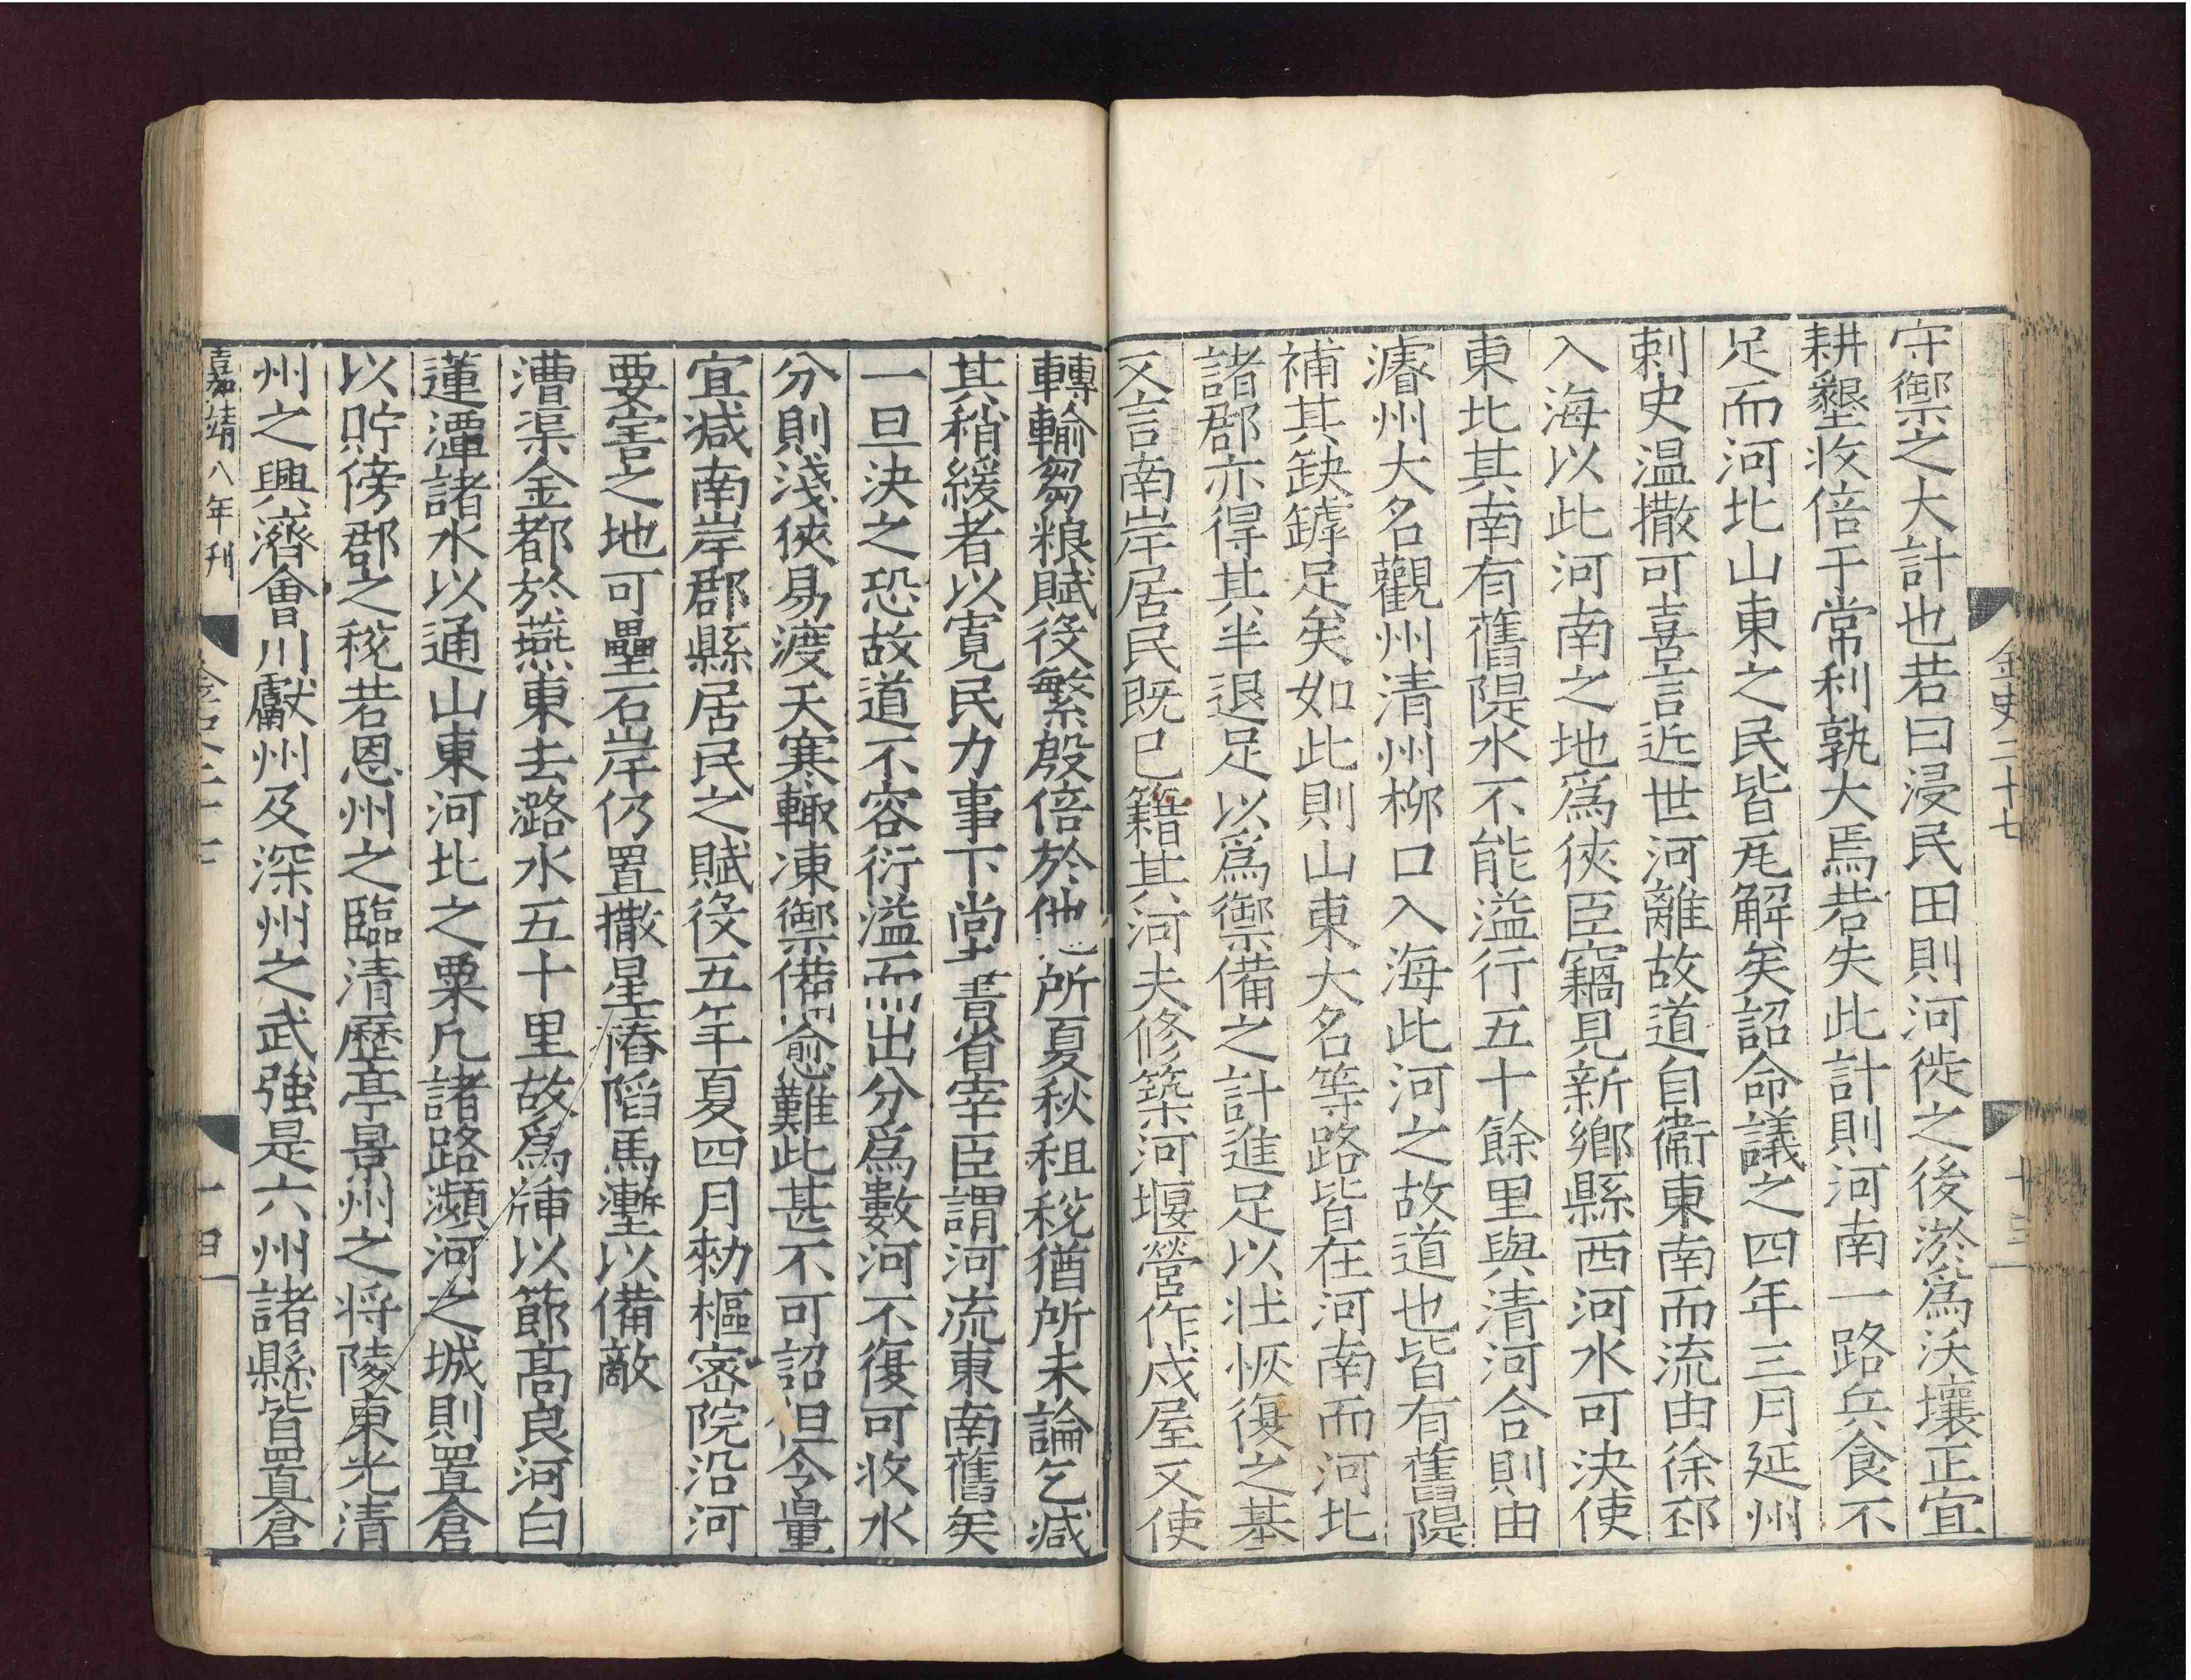 守禦之大計也若曰浸民田則河徙之後淤爲沃壤正宜
耕墾收倍于常利孰大焉若失此計則河南一路兵食不
足而河北山東之民皆瓦解矣詔命議之四年三月延州
刺史温撒可喜言近世河離故道自衞東南而流由徐邳
入海以此河南之地爲狹臣竊見新鄉縣西河水可決使
東北其南有舊隄水不能溢行五十餘里與清河合則由
濬州大名觀州清州柳口入海此河之故道也皆有舊隄
補其缺罅足矣如此則山東大名等路皆在河南而河北
諸郡亦得其半退足以爲禦備之計進足以壯恢復之基
又言南岸居民既已籍其河夫修築河堰營作戍屋又使
金史二十七
十三
轉輸芻粮賦役繁殷倍於他所夏秋租稅猶所未論乞减
其稍緩者以寛民力事下尚書省宰臣謂河流東南舊矣
一旦決之恐故道不容衍溢而出分爲數河不復可收水
分則淺狹易渡天寒輙凍禦備愈難此甚不可詔但令量
宜减南岸郡縣居民之賦役五年夏四月勑樞密院沿河
要害之地可壘石岸仍置撒星樁䧟馬塹以備敵
漕渠金都於燕東去潞水五十里故爲牐以節高良河白
蓮潭諸水以通山東河北之粟凡諸路瀕河之城則置倉
以貯傍郡之稅若恩州之臨清歷亭景州之將陵東光清
州之興濟會川獻州及深州之武強是六州諸縣皆置倉
嘉靖八年刊
金史二十七
十四